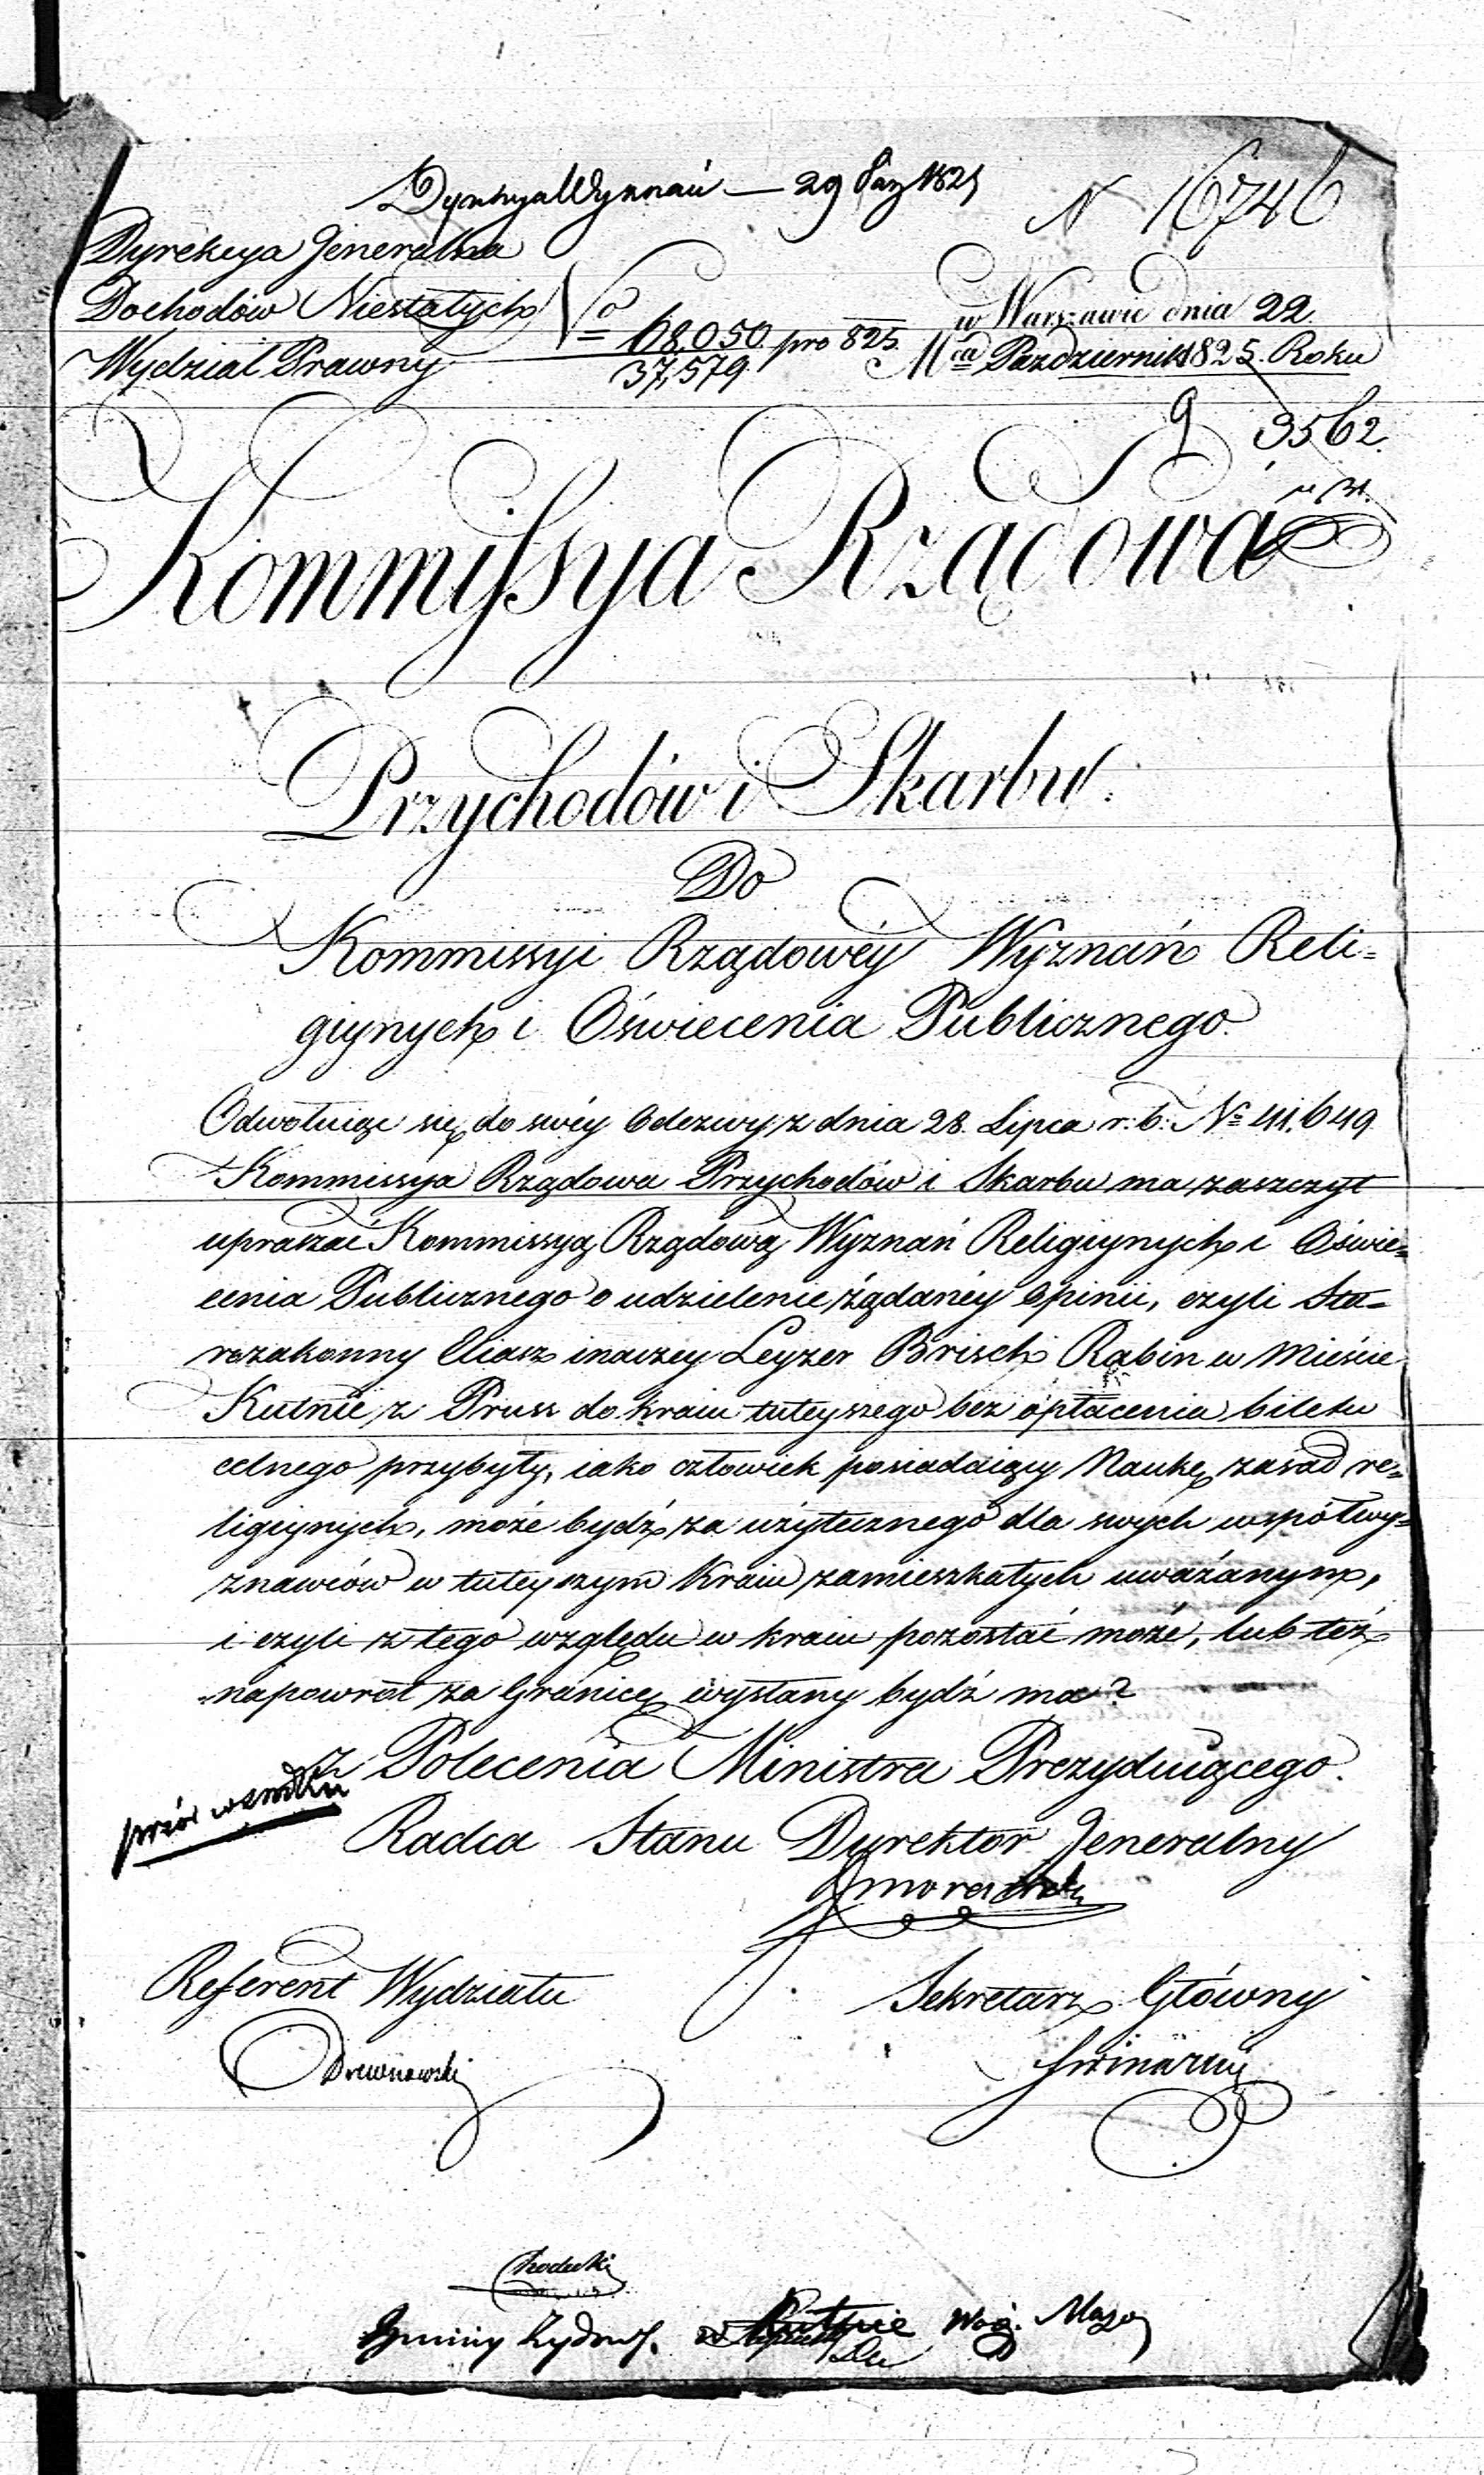 29 Paz 1825
N 16746
Dyrekcya Jeneralna
Dochodów Niestałych
Wydział Prawny
No 68,050 pro 825.
37,579.
w Warszawie dnia 22
Mca Październik 1825. Roku
9 3562.
Kommissya Rządowa
Przychodów i Skarbu.
Do
Kommissyi Rządowéy Wyznań Reli=
giynych i Oświecenia Publicznego.
Odwołuiąc się do swéy Odezwy z dnia 28. Lipca r: b: No 41,649
Kommissya Rządowa Przychodów i Skarbu ma zaszczyt
upraszać Kommissyą Rządową Wyznań Religiynych i Oświe=
cenia Publicznego o udzielenie żądanéy Opinii, czyli Sta=
rozakonny Eliasz inaczey Leyzer Brisch Rabin w Mieście
Kutnie z Pruss do kraiu tuteyszego bez opłacenia biletu
celnego przybyły, iako człowiek posiadaiący Naukę zasad re=
ligiynych, może bydź za użytecznego dla swych współwy=
znawców w tuteyszym Kraiu zamieszkałych uważanym,
i czyli z tego względu w kraiu pozostać może, lub też
napowrót za Granicę wysłany bydź ma?
z Polecenia Ministra Prezyduiącego.
Radca Stanu Dyrektor Jeneralny
Referent Wydziału
Sekretarz Główny
Drewnowski
Gminy Żydows. w Kutnie Woj. Mazo